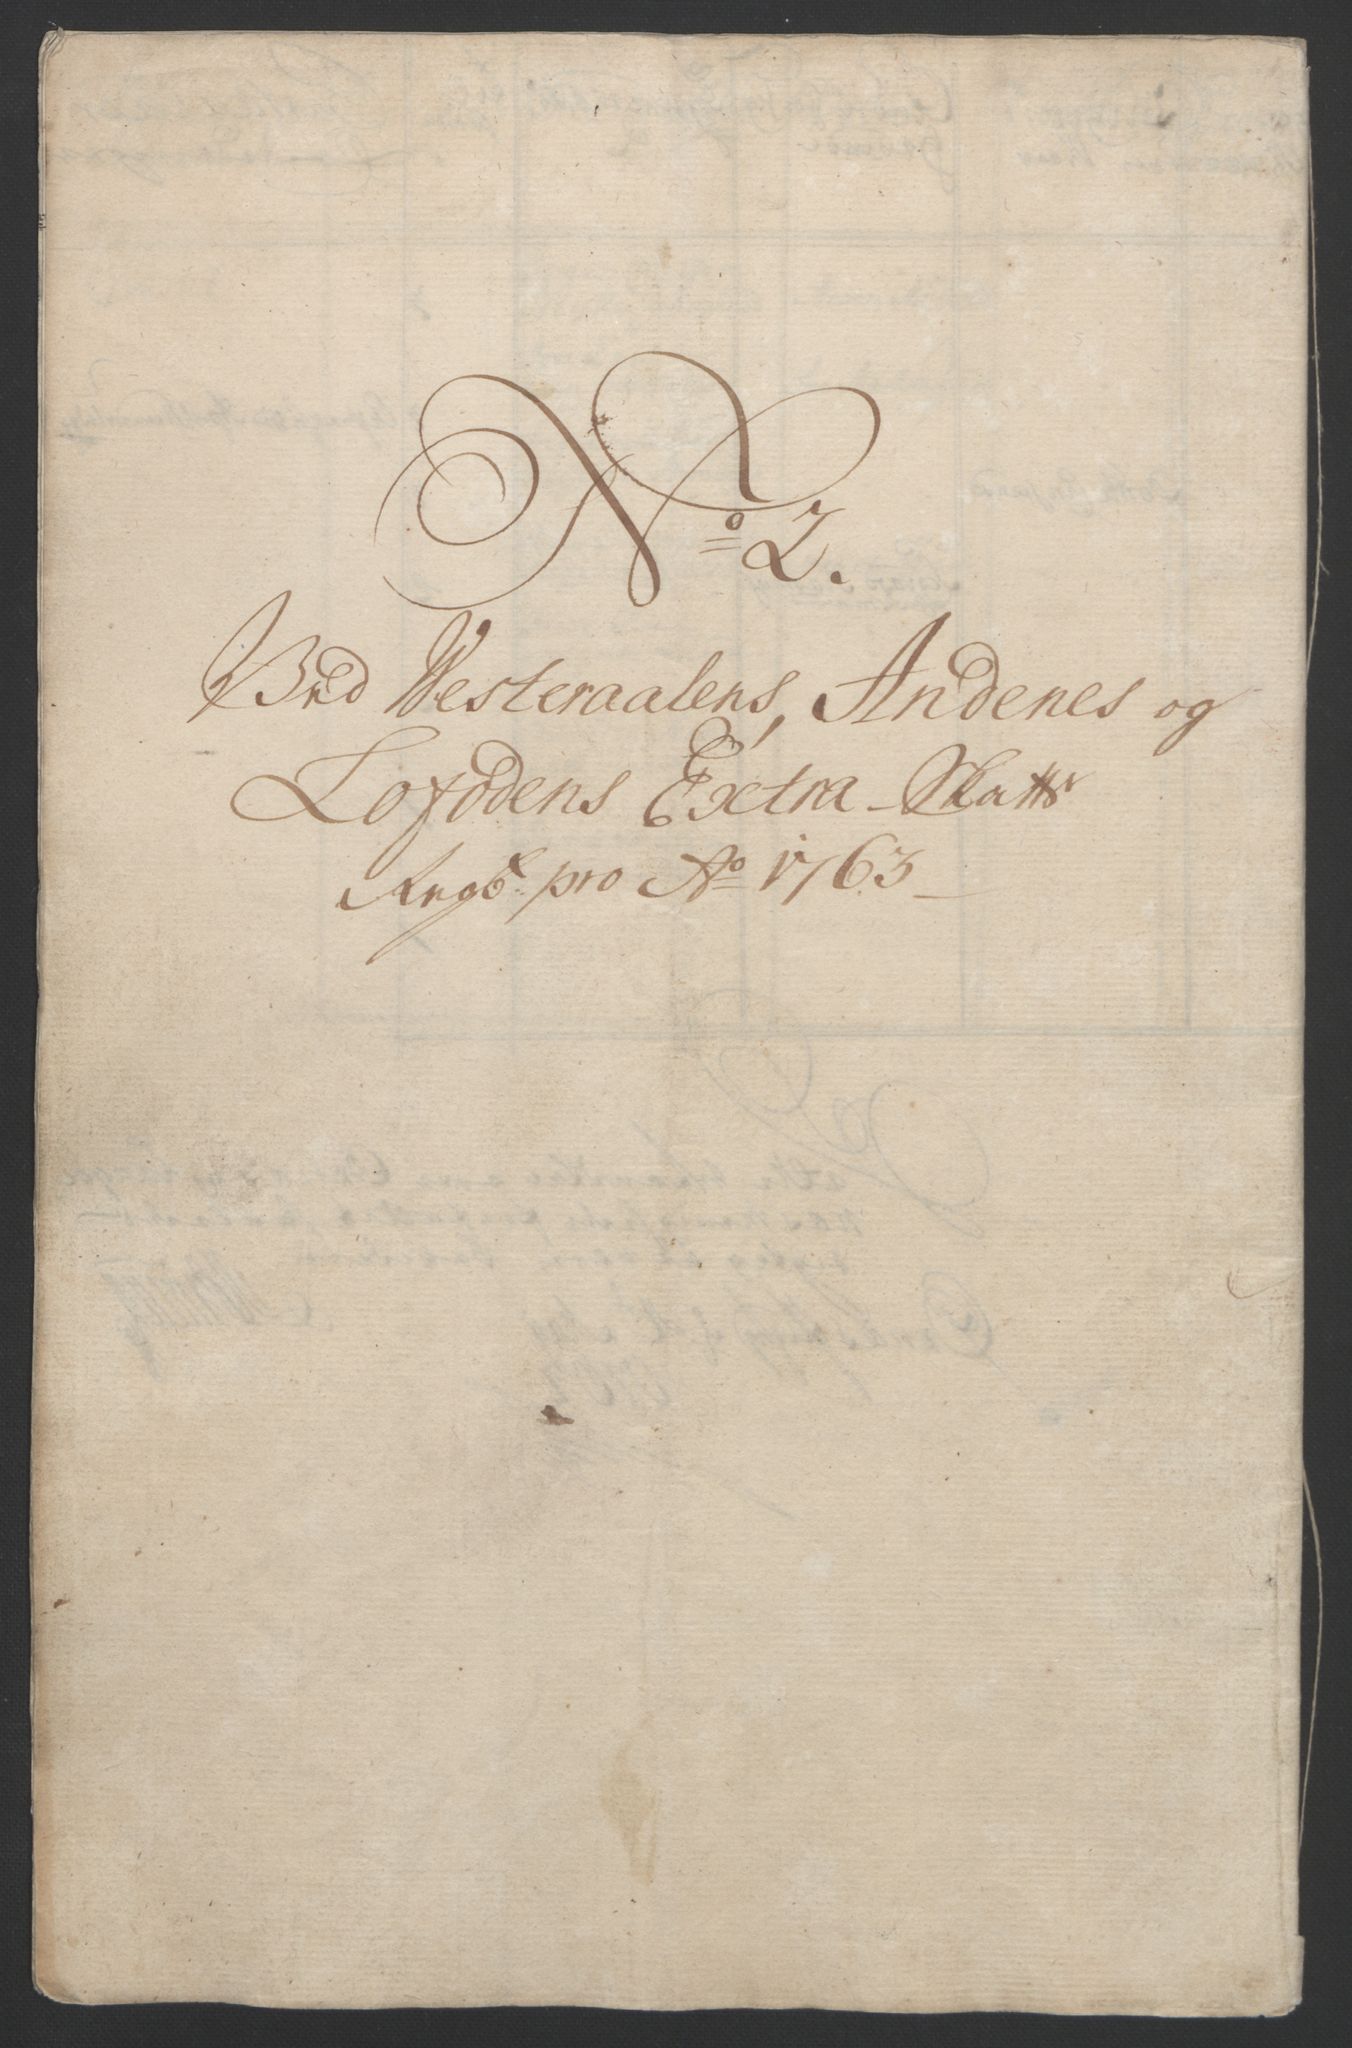 No 2.
Ved Westeraalens, Andenes og
Lofodens Extra-Skatts
Regb. pro Ao 1763